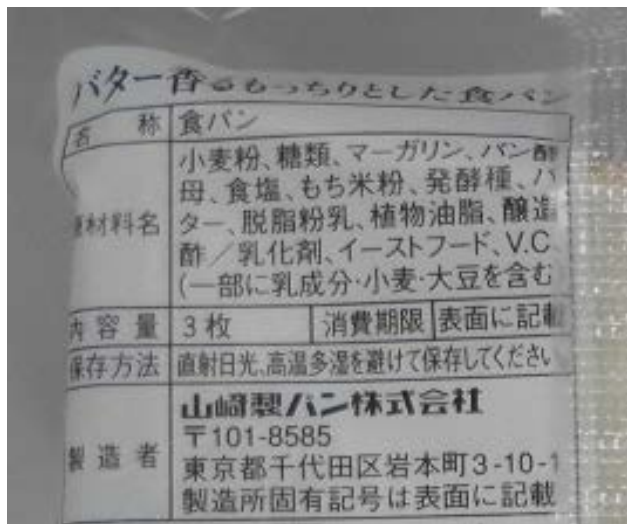 バター香るもっちりとした食パン
名 称 食パン
原材料名 小麦粉、糖類、マーガリン、パン酵
母、食塩、もち米粉、発酵種、バ
ター、脱脂粉乳、植物油脂、醸造
酢／乳化剤、イーストフード、V.C
(一部に乳成分・小麦・大豆を含む
内容量 3枚 消費期限 表面に記載
保存方法 直射日光、高温多湿を避けて保存してください
製造者 山崎製パン株式会社
〒101-8585
東京都千代田区岩本町3-10-1
製造所固有記号は表面に記載